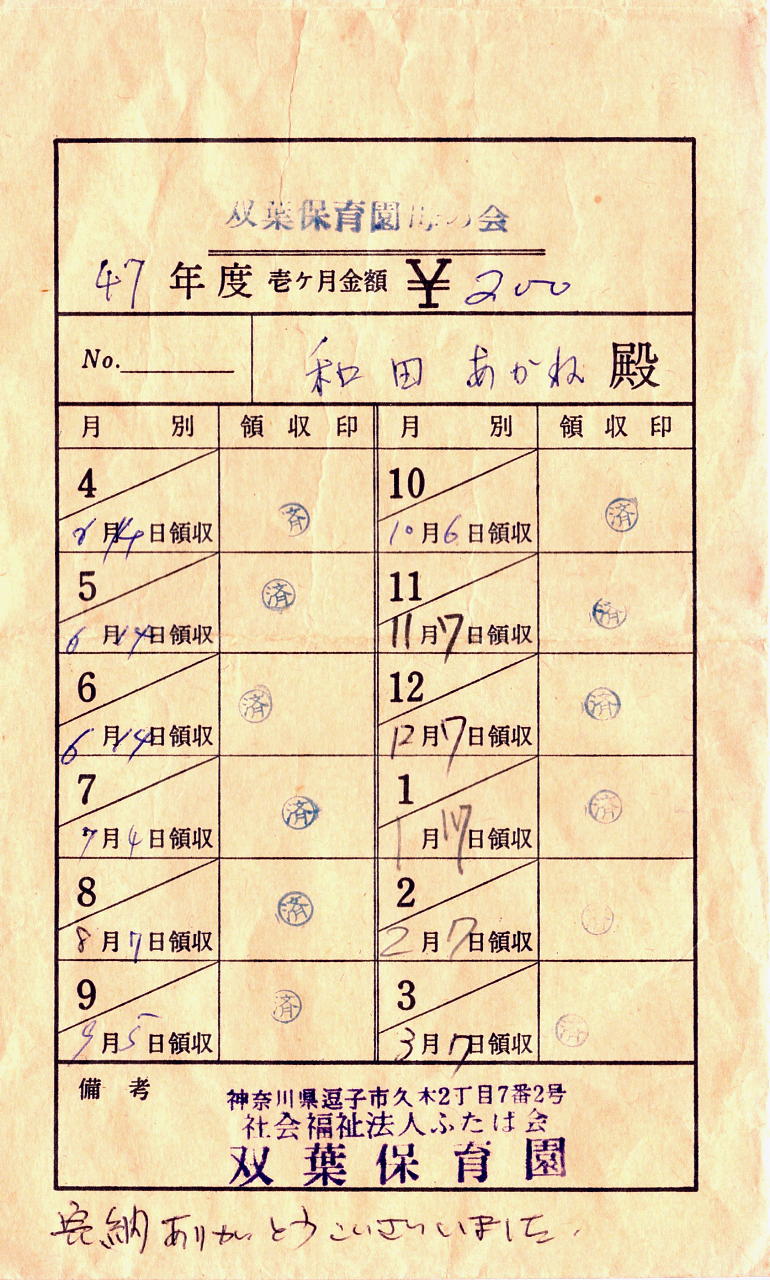 双葉保育園母の会
47年度 壱ケ月金額 ¥200
No. 和田 あかね 殿
月別 領収印 月別 領収印
4 6月14日領収 済
10 10月6日領収 済
5 6月14日領収 済
11 11月7日領収 済
6 6月14日領収 済
12 12月7日領収 済
7 7月4日領収 済
1 1月17日領収 済
8 8月7日領収 済
2 2月7日領収
9 9月5日領収 済
3 3月7日領収 済
備考
神奈川県逗子市久木2丁目7番2号
社会福祉法人ふたば会
双葉保育園
完納ありがとうございました.